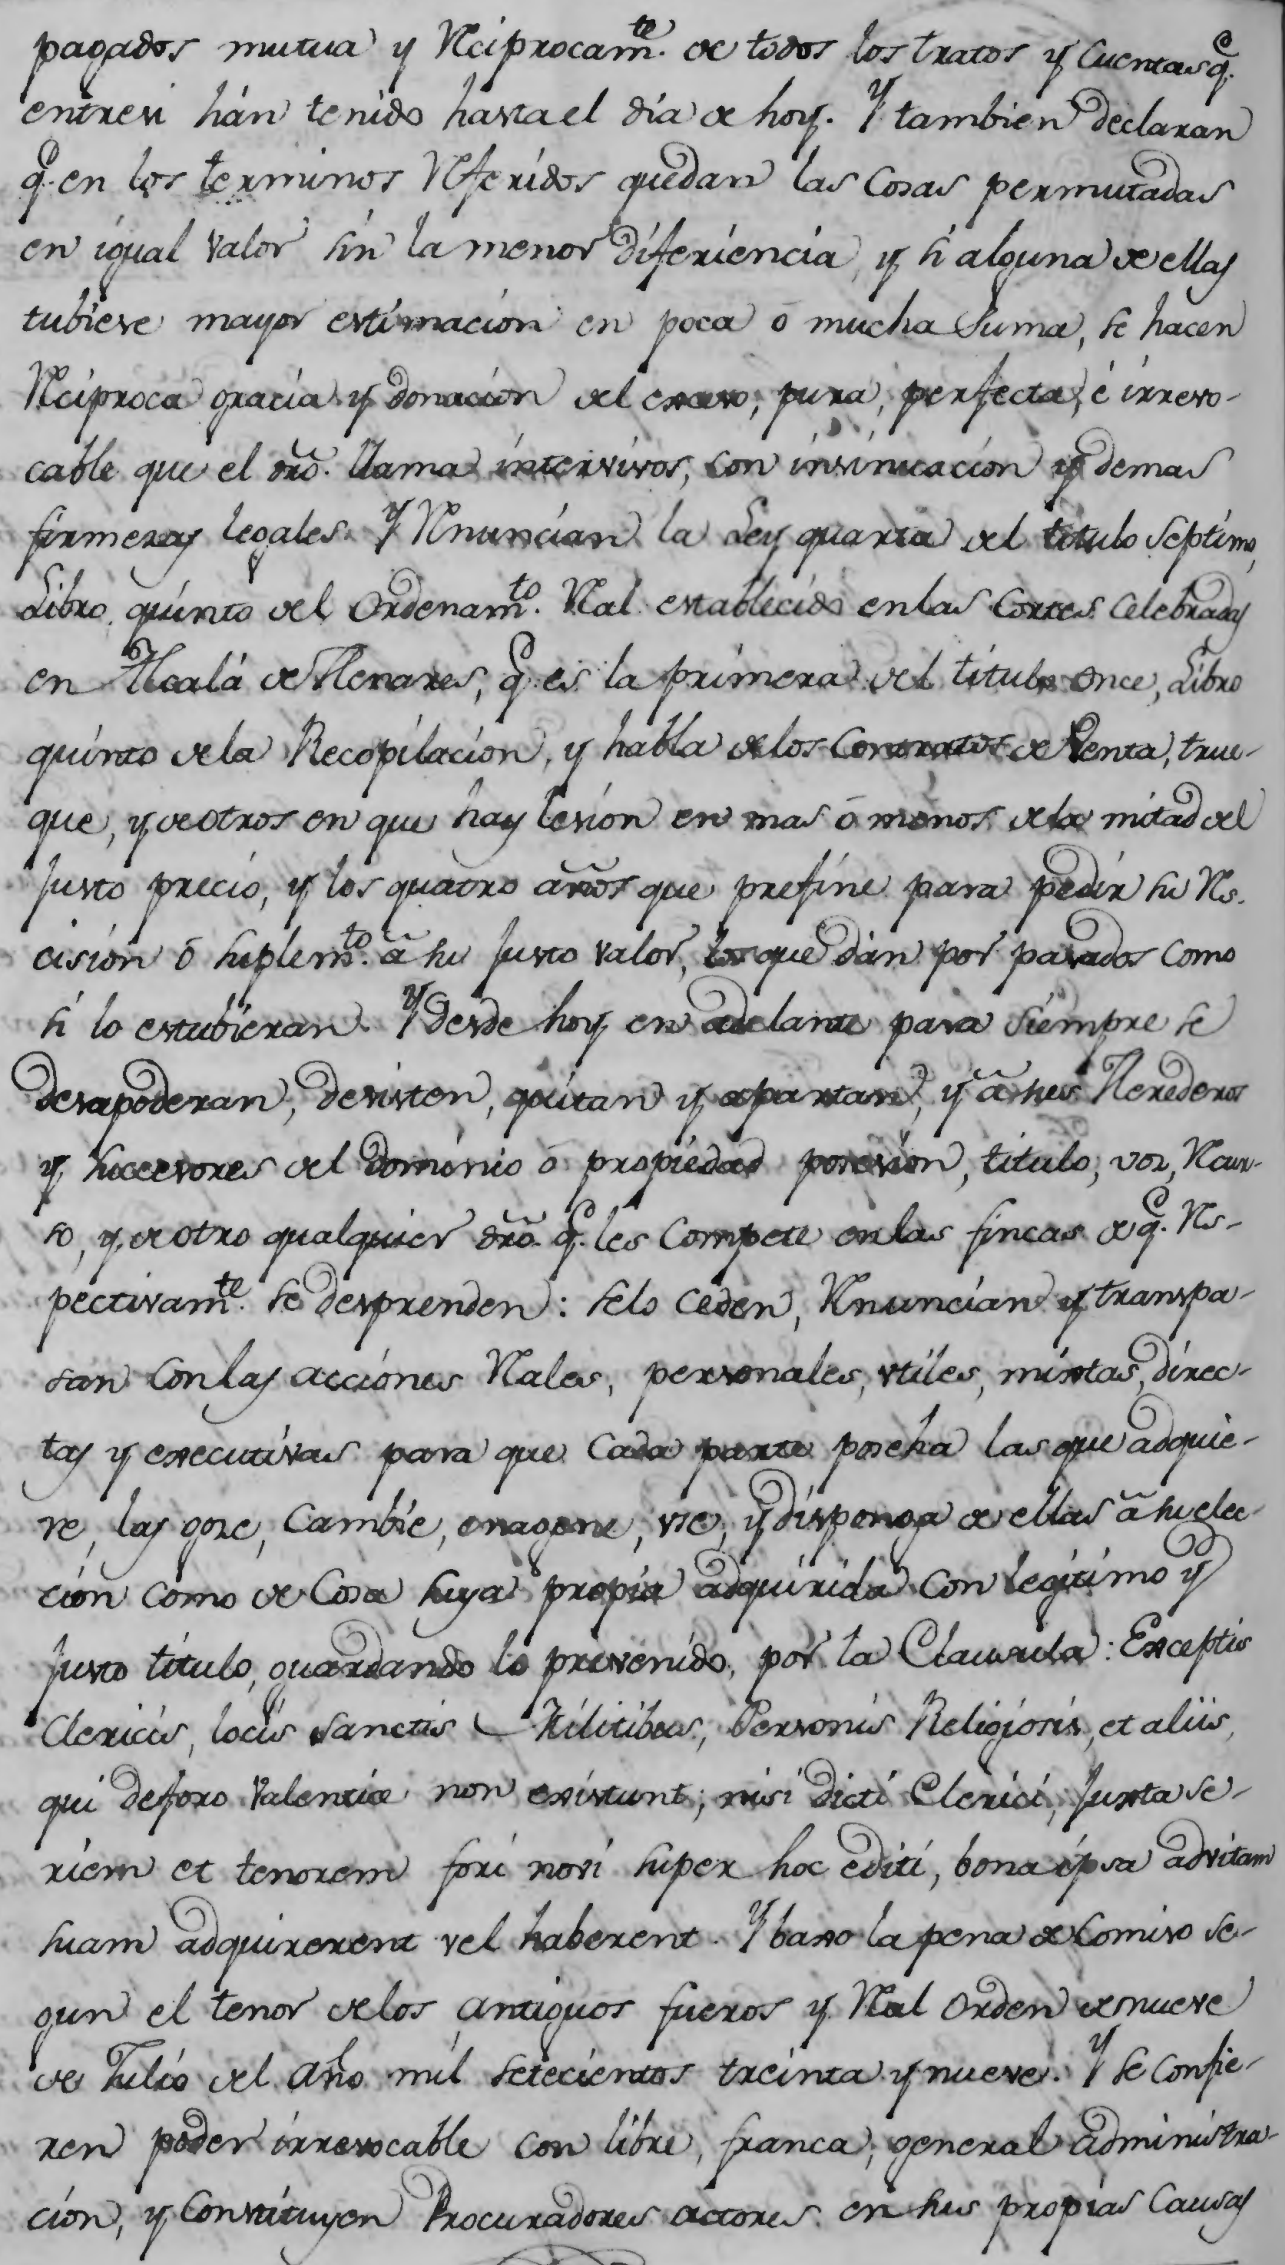 pagados mutua y Reciprocamte. de todos los tratos y Cuentas q.
entresi hán tenido hasta el día de hoy. Y tambien declaran
q. en los terminos Referidos quedan las Cosas permutadas
en igual valor sin la menor diferiencia, y si alguna de ellas
tubiese mayor estimacion en poca ó mucha Suma, se hacen
Reciproca gracia y donacion del exceso, pura, perfecta, é irrevo-
cable que el dro. llama intervivos, con insinuacion y demas
firmezas legales. Y Renuncian la Ley quarta del titulo Septimo,
Libro quinto del Ordenamto. Real establecido en las Cortes Celebradas
en Alcalá de Henares, q. es la primera del titulo Once, Libro
quinto de la Recopilacion, y habla de los Contratos de Venta, true-
que, y de otros en que hay lesion en mas ó menos de la mitad del
Justo precio, y los quatro años que prefine para pedir su Res-
cision ó suplemto. á su Justo valor, los que dán por pasados Como
si lo estubieran. Y desde hoy en adelante para Siempre se
desapoderan, desisten, quitan y apartan, y á sus Herederos
y succesores del dominio ó propiedad posesion, titulo, voz, Recur-
so, y de otro qualquier dro. q. les Compete en las fincas de q. Res-
pectivamte. se desprenden: selo Ceden, Renuncian y transpa-
san Con las acciones Reales, personales, utiles, mixtas, direc-
tas y executivas para que Cada parte poseha las que adquie-
re, las goze, Cambie, enagene, use, y disponga de ellas á su elec-
cion como de Cosa suya propia adquirida Con legitimo y
Justo titulo, guardando lo prevenido, por la Clausula: Exceptis
Clericis, locis Sanctis Militibus, Personis Religiosis, et aliis,
qui deforo Valentiæ non existunt; nisi dicti Clerici, Juxta se-
riem et tenorem fori novi super hoc editi, bona ipsa advitam
suam adquirerent vel haberent. Y baxo la pena de Comiso se-
gun el tenor de los Antiguos fueros y Real Orden de nueve
de Julio del Año mil setecientos treinta y nueve. Y se Confie-
ren poder irrevocable con libre, franca, general administra-
ción, y Constituyen Procuradores actores en sus propias Causas